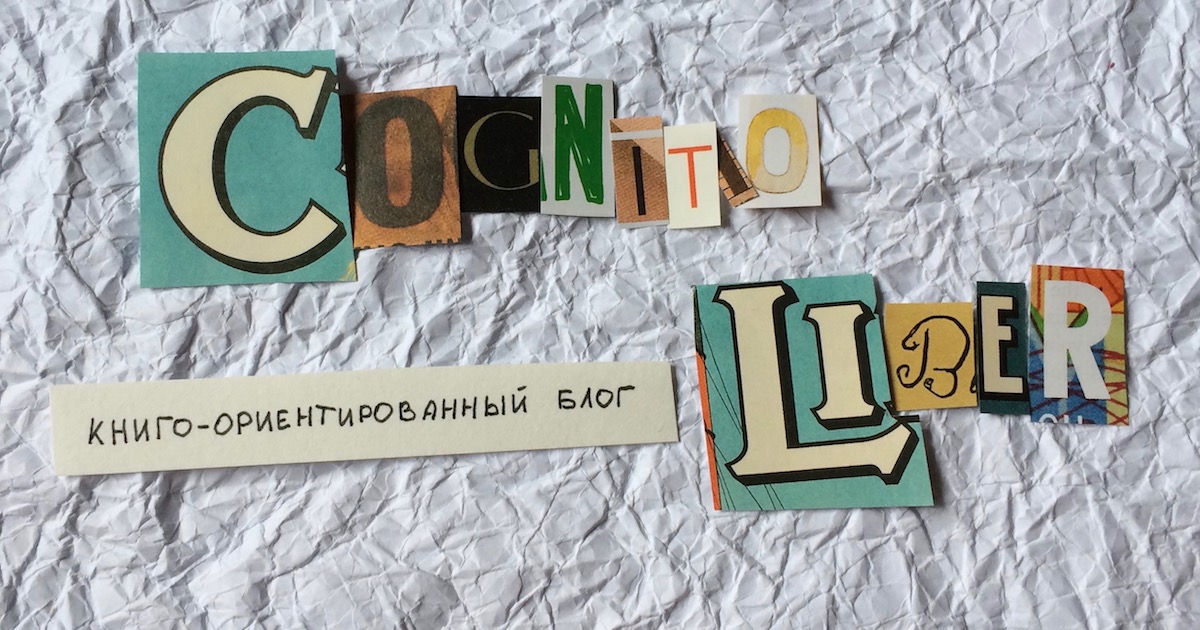 COGNITIO
LIBER
КНИГО-ОРИЕНТИРОВАННЫЙ БЛОГ